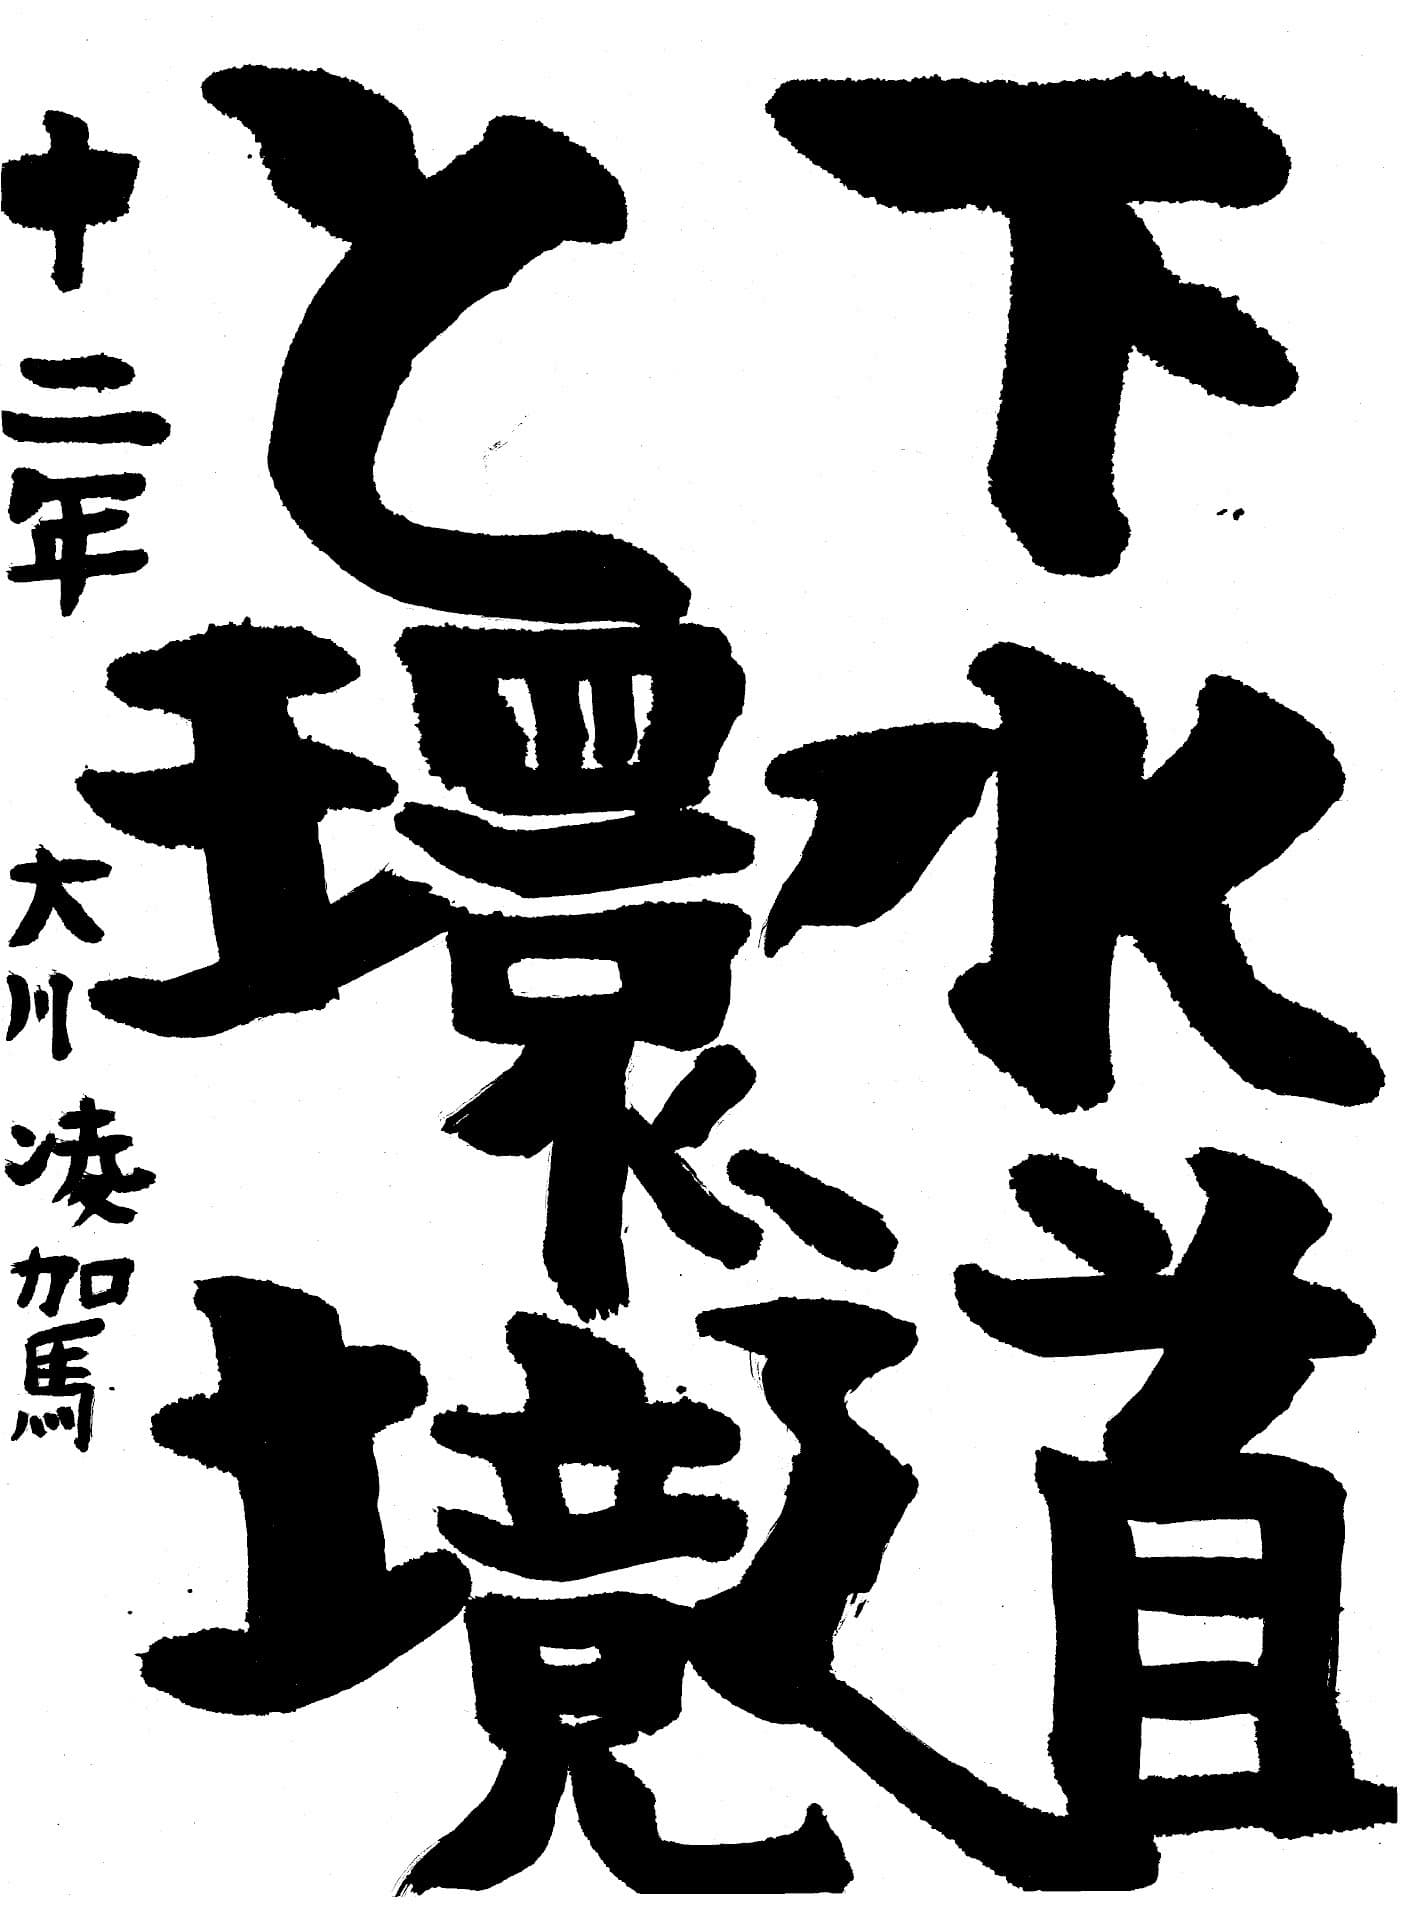 下水道
と環境
十二年 大川凌加馬